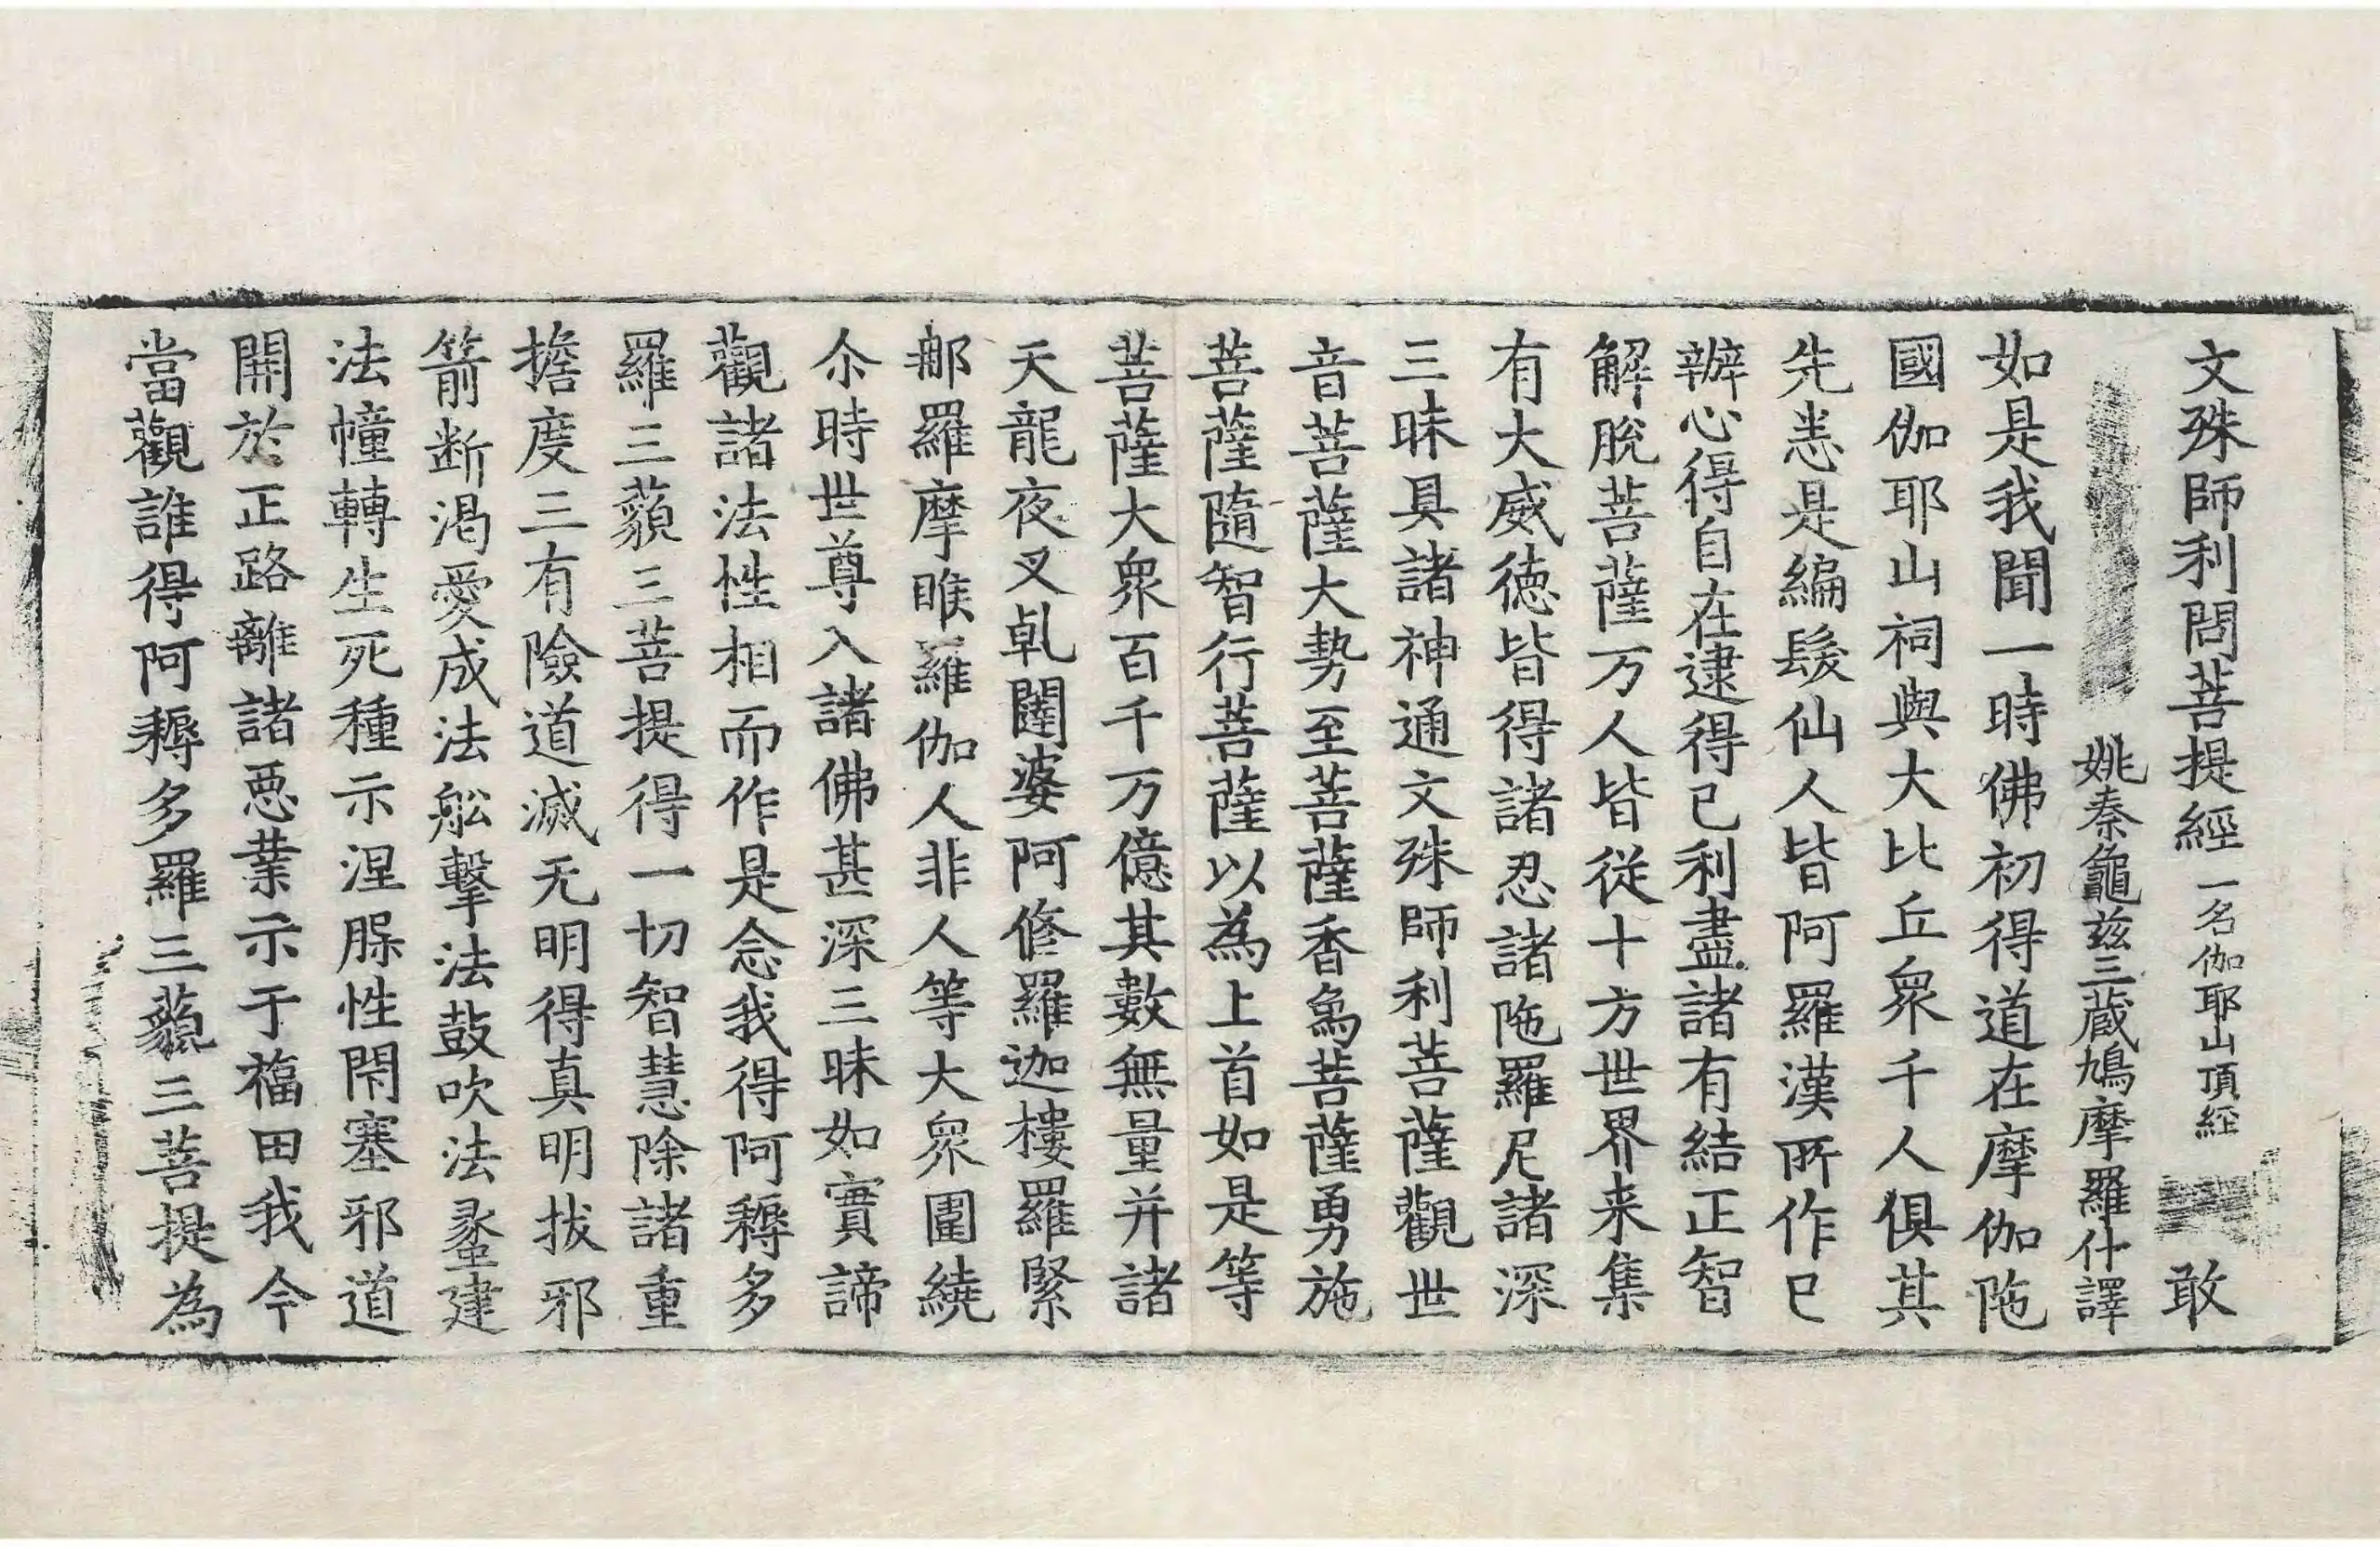 文殊師利問菩提經一名伽耶山頂経 敢
姚秦龜茲三蔵鳩摩羅什譯
如是我聞一時佛初得道在摩伽陁
國伽耶山祠與大比丘衆千人俱其
先悉是編髮仙人皆阿羅漢所作已
辦心得自在逮得已利盡諸有結正智
解脫菩薩万人皆從十方世界来集
有大威徳皆得諸忍諸陁羅尼諸深
三昧具諸神通文殊師利菩薩觀世
音菩薩大勢至菩薩香象菩薩勇施
菩薩隨智行菩薩以為上首如是等
菩薩大衆百千万億其數無量并諸
天龍夜叉乹闥婆阿修羅迦樓羅緊
那羅摩睺羅伽人非人等大衆圍繞
尒時世尊入諸佛甚深三昧如實諦
觀諸法性相而作是念我得阿耨多
羅三藐三菩提得一切智慧除諸重
擔度三有險道滅无明得真明拔邪
箭断渴愛成法舩擊法鼓吹法蠡建
法幢轉生死種示涅槃性閇塞邪道
開於正路離諸悪業示于福田我今
當觀誰得阿耨多羅三藐三菩提為